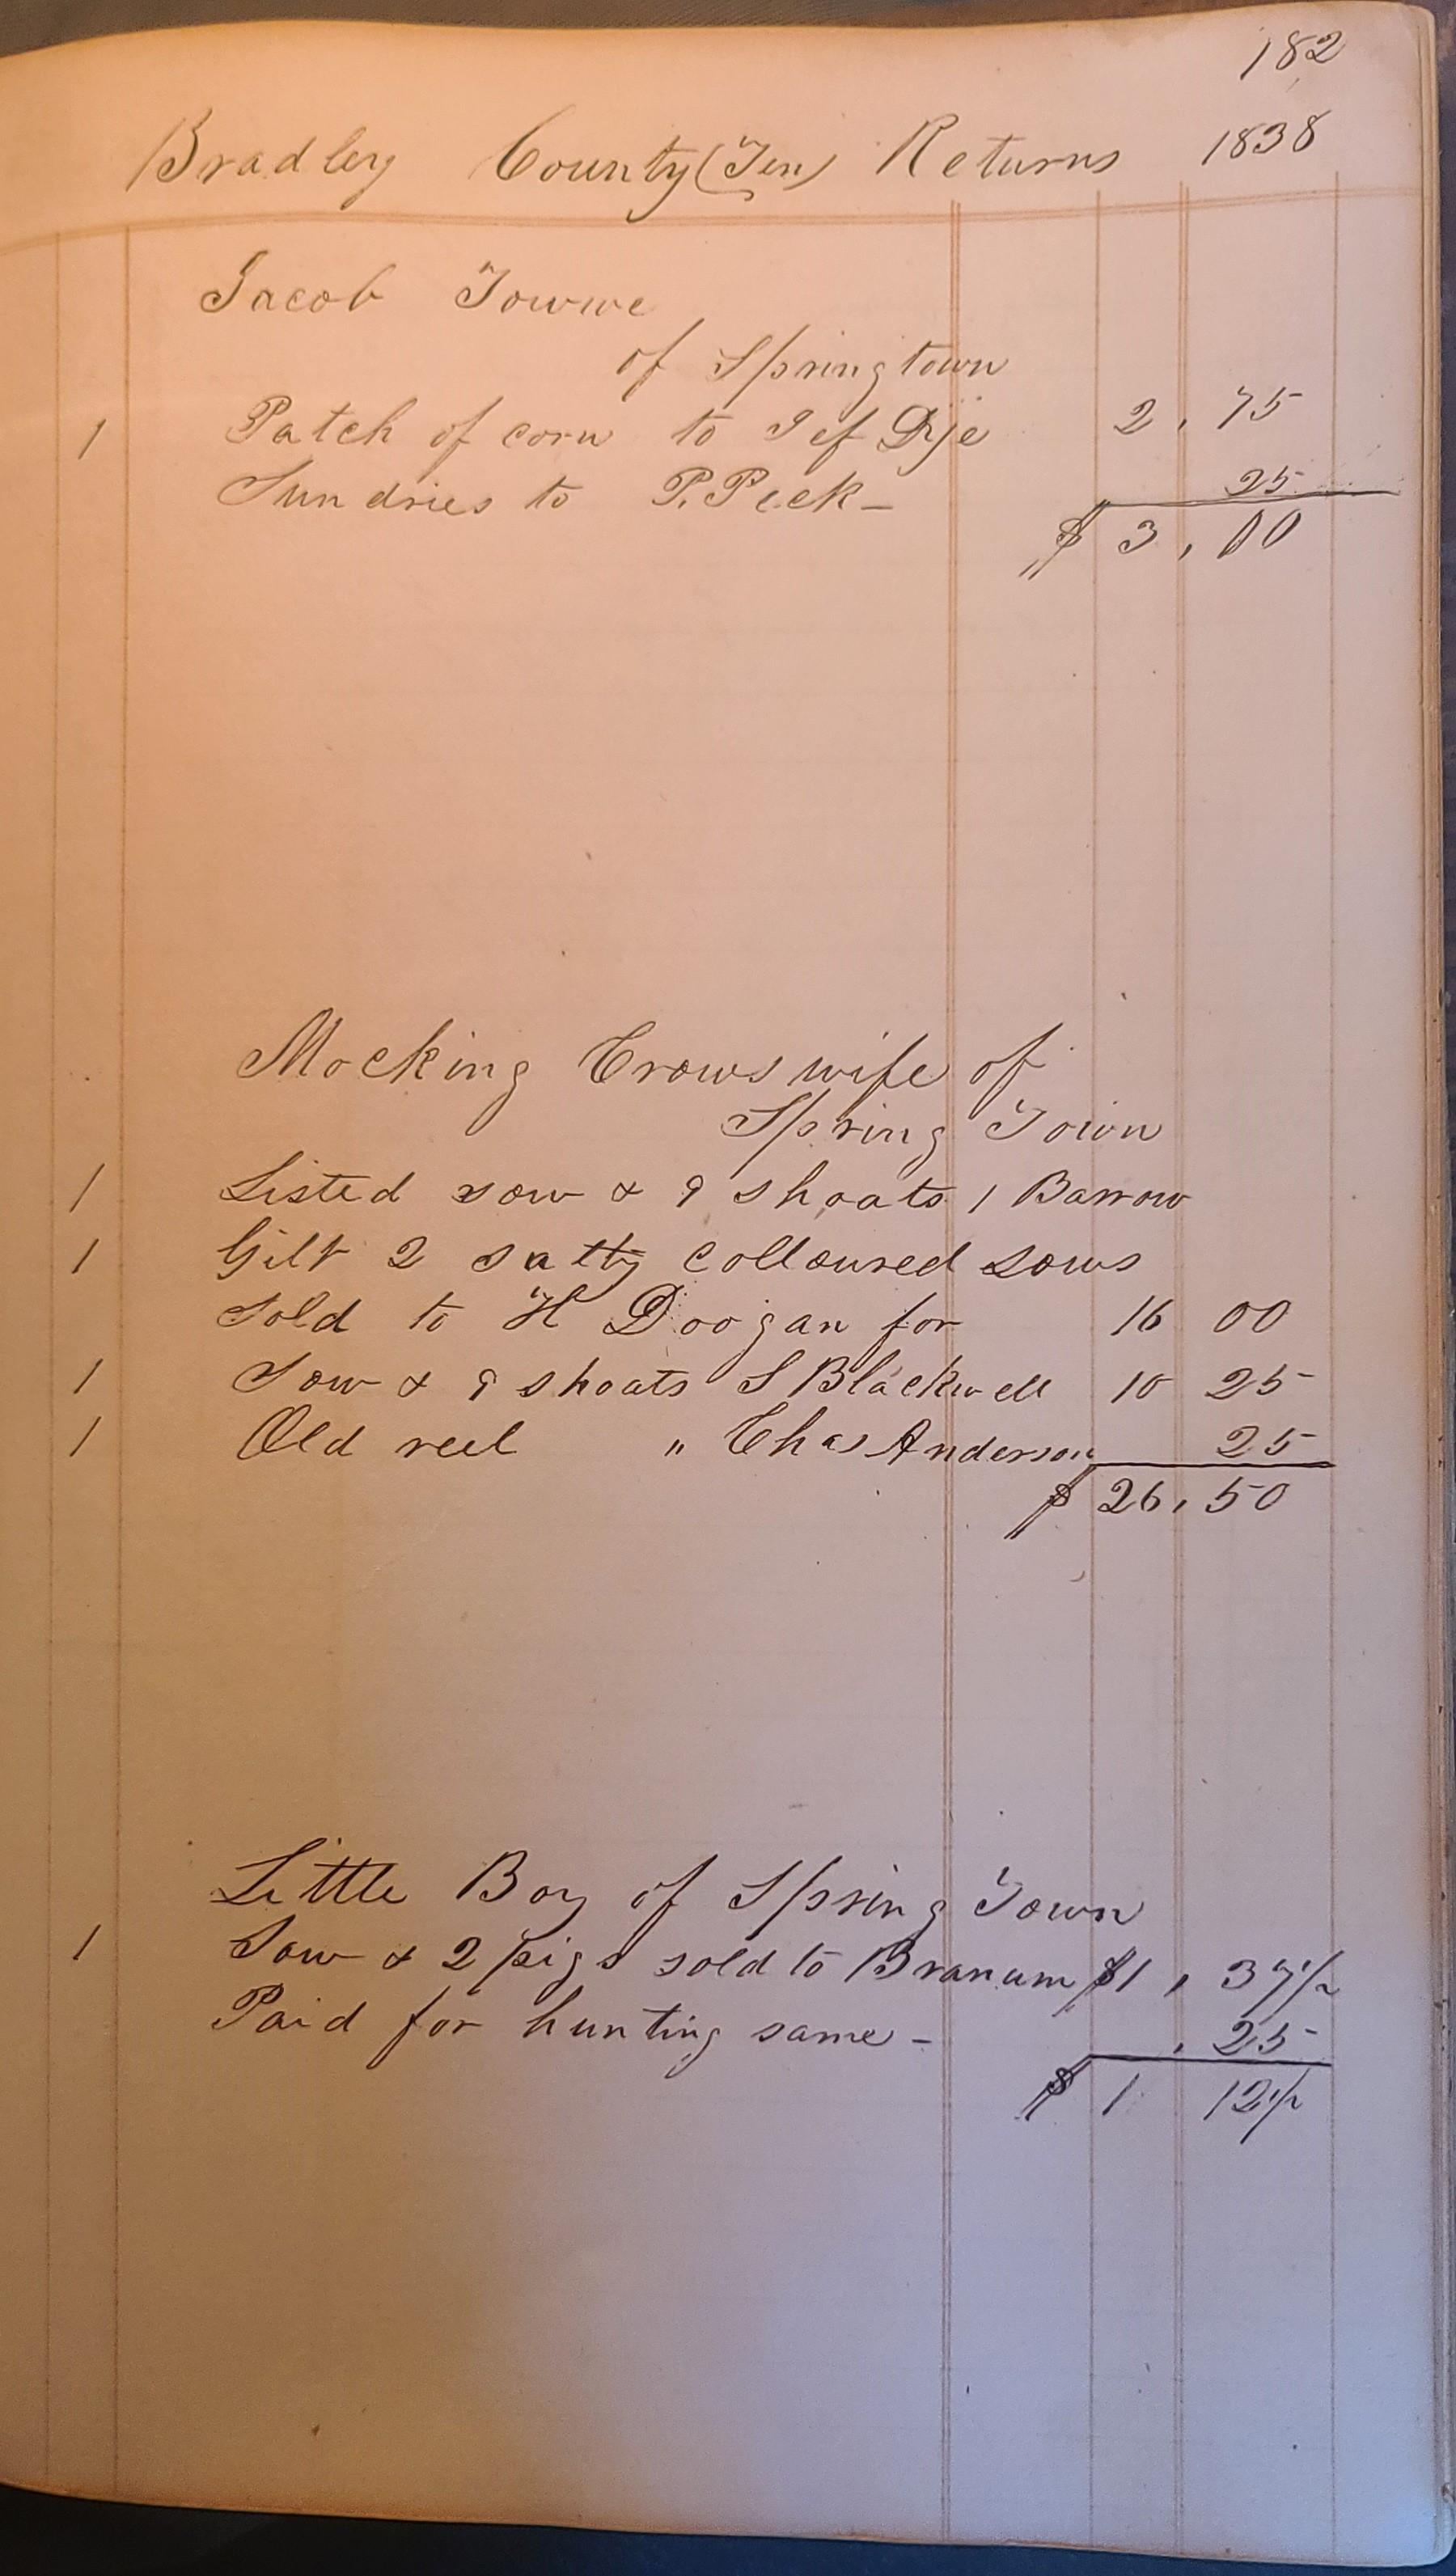 182
Bradley County (Ten) Returns 1838
Jacob
of Springtown
1 Patch of corn to Jef Dye 2,75
Sundries to P. Peck – 25
$ 3,00
Mocking Crows wife of
Spring Town
1 Listed sow & 9 shoats 1 Barrow
1 Gilt 2 colloured sows
Sold to H Doogan for 16 00
1 Sow & 9 shoats S Blackwell 10 25
1 Old reel " Chas Anderson 25
$ 26,50
Little Boy of Spring Town
1 Sow & 2 pigs sold to Branum $1,37½
Paid for hunting same – ,25
$ 1 12½